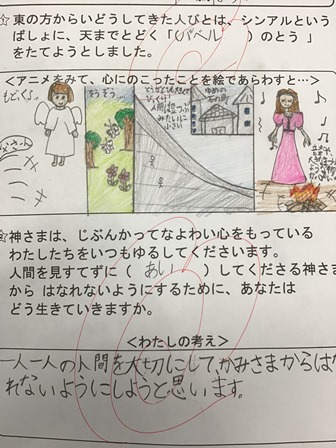 ☆東の方からいどうしてきた人びとは、シンアルという
ばしょに、天までとどく「(バベル)のとう」
をたてようとしました。
＜アニメをみて、心にのこったことを絵であらわすと…＞
そうぞう
ゆめの
石の町
☆神さまは、じぶんかってなよわい心をもっている
わたしたちをいつもゆるしてくださいます。
人間を見すてずに(あい)してくださる神さま
から はなれないようにするために、あなたは
どう生きていきますか。
＜わたしの考え＞
一人一人の人間を大切にして、かみさまからはな
れないようにしようと思います。